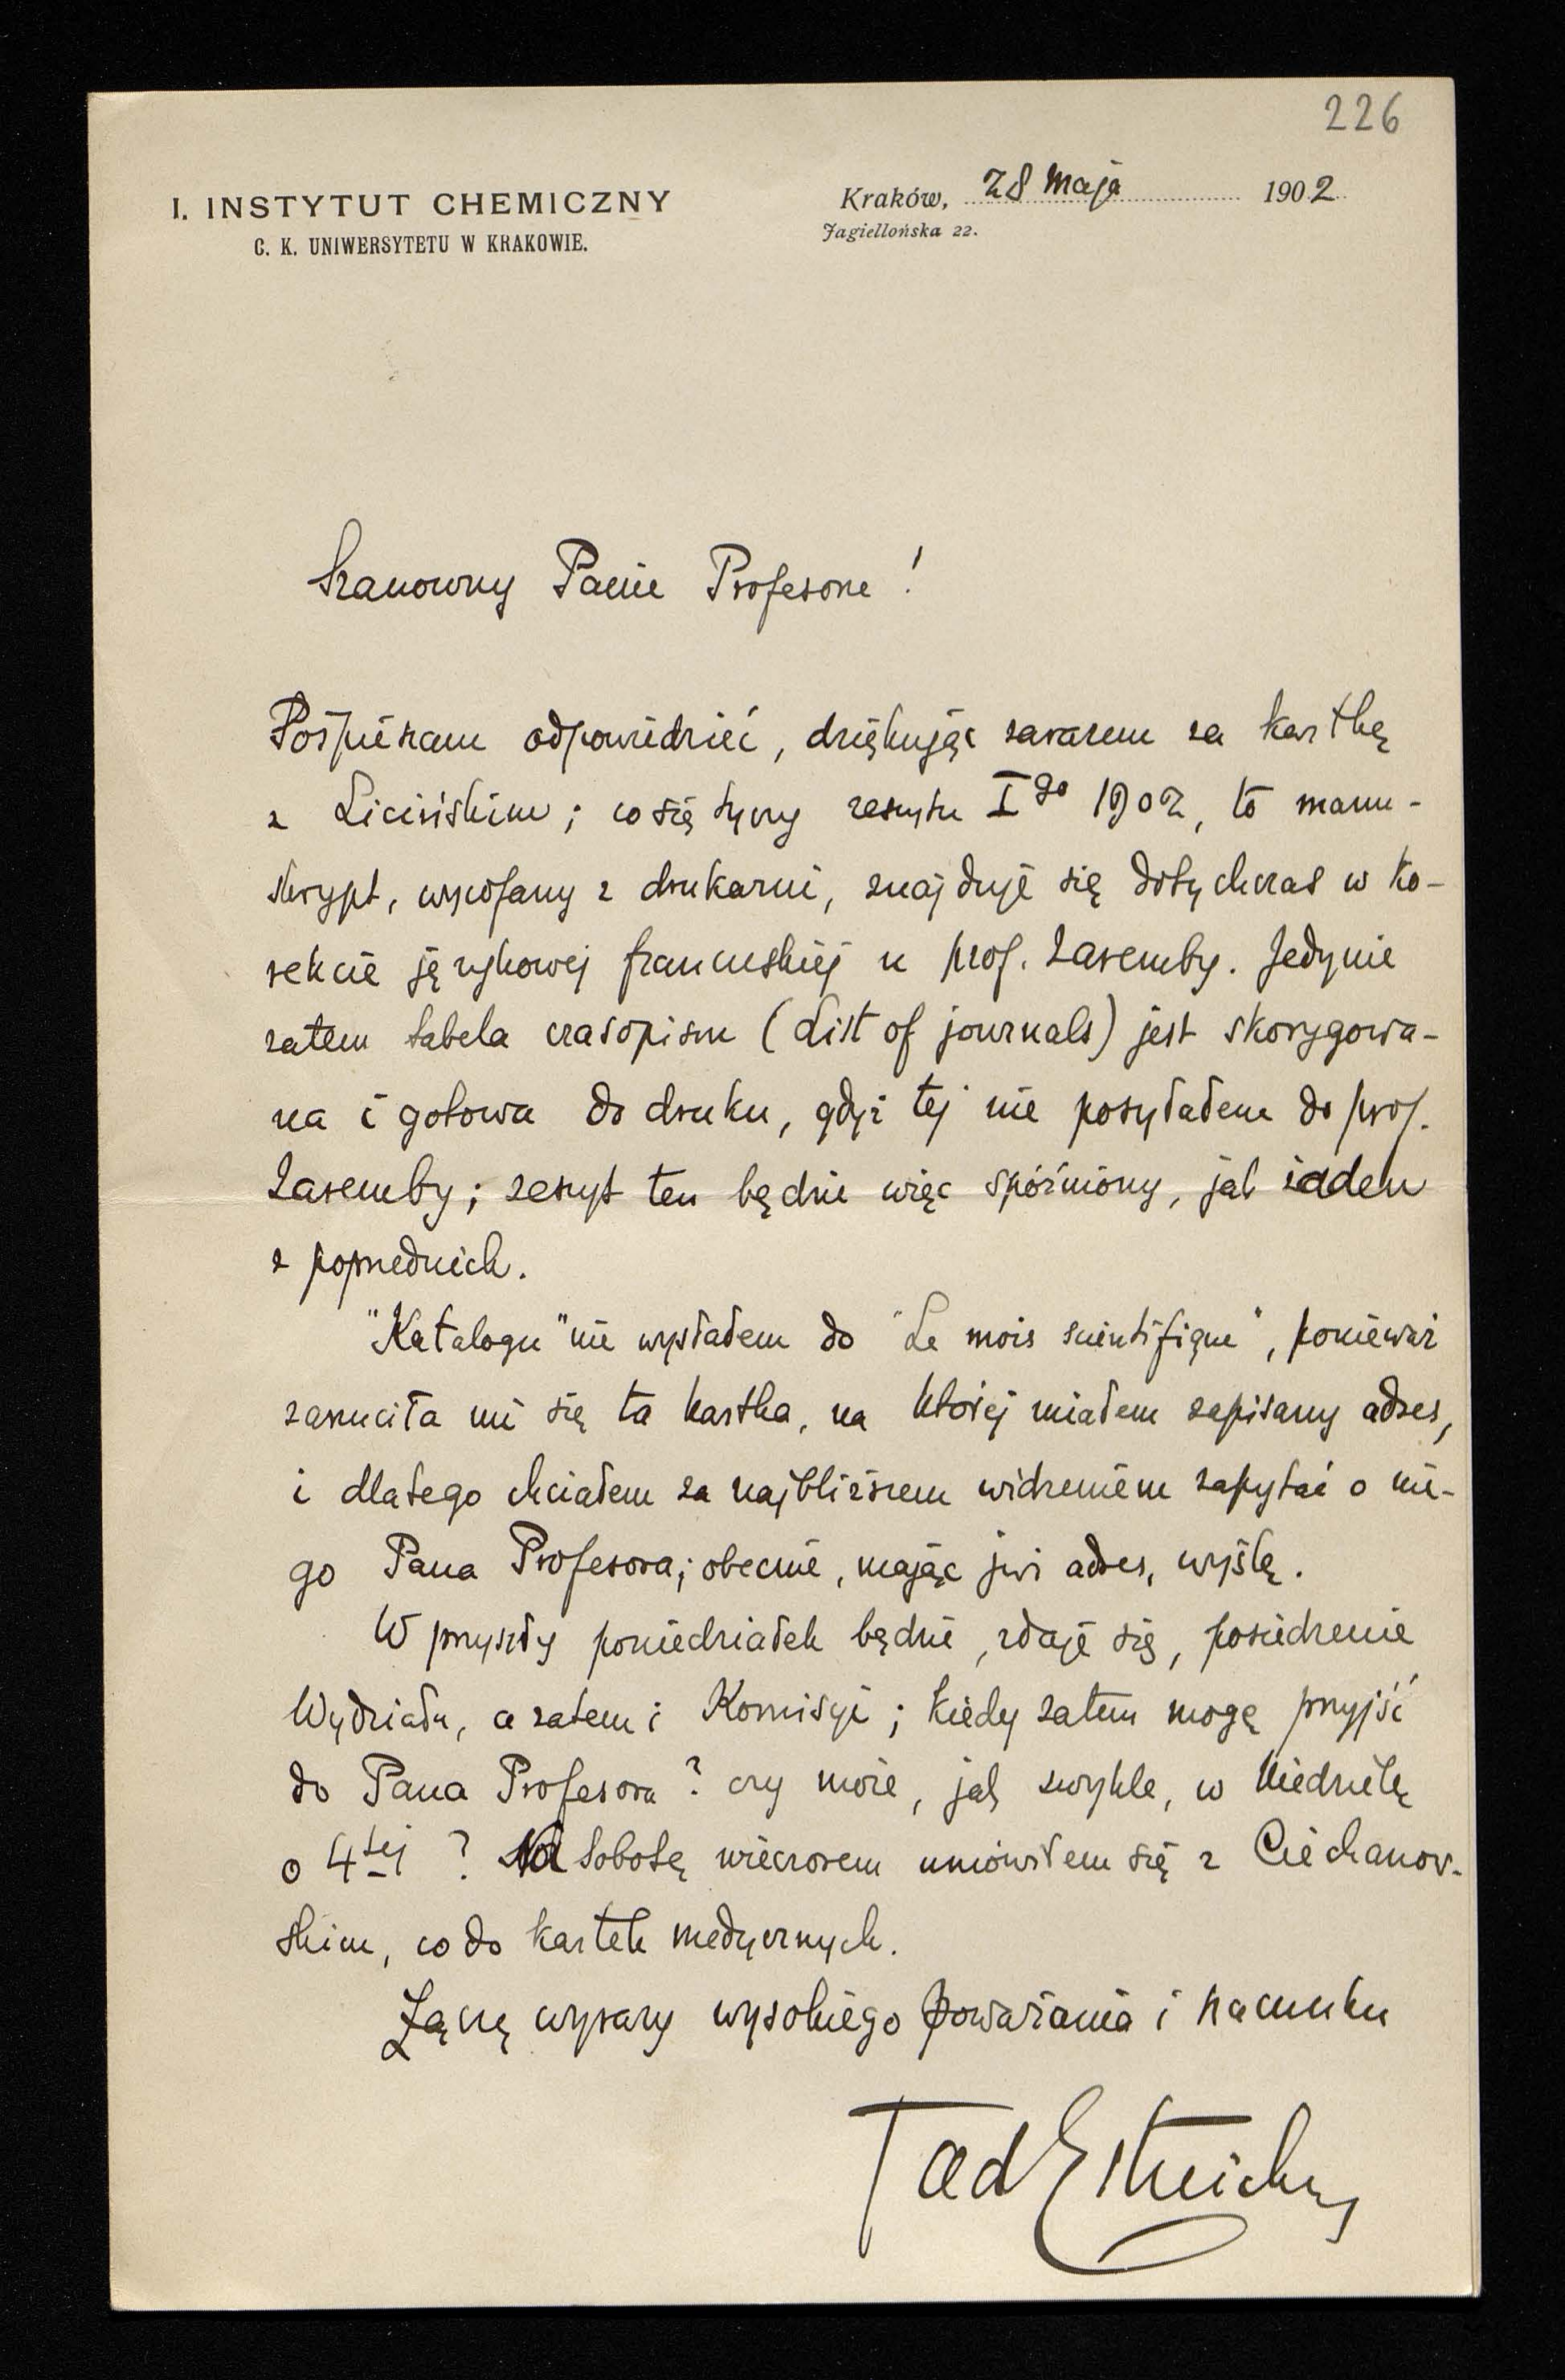 226
I. INSTYTUT CHEMICZNY
C. K. UNIWERSYTETU W KRAKOWIE.
Kraków, 28 maja 1902
Jagiellońska 22.
Szanowny Panie Profesorze!
Pośpieszam odpowiedzieć, dziękując zarazem za kartkę
z Licińskim; co się tyczy zeszytu Igo 1902, to manu-
skrypt, wycofany z drukarni, znajduje się dotychczas w ko-
rekcie językowej francuskiej u prof. Zaremby. Jedynie
zatem tabela czasopism (List of journals) jest skorygowa-
na i gotowa do druku, gdyż tej nie posyłałem do prof.
Zaremby; zeszyt ten będzie więc spóźniony, jak żaden
z poprzednich.
"Katalogu" nie wysłałem do "Le mois scientifique", ponieważ
zarzuciła mi się ta kartka, na której miałem zapisany adres,
i dlatego chciałem za najbliższem widzeniem zapytać o nie-
go Pana Profesora; obecnie, mając już adres, wyślę.
W przyszły poniedziałek będzie, zdaje się, posiedzenie
Wydziału, a zatem i Komisyi; kiedy zatem mogę przyjść
do Pana Profesora? czy może, jak zwykle, w niedzielę
o 4tej? Na sobotę wieczorem umówiłem się z Ciechanow-
skim, co do kartek medycznych.
Łączę wyrazy wysokiego poważania i szacunku
TadEstreicher